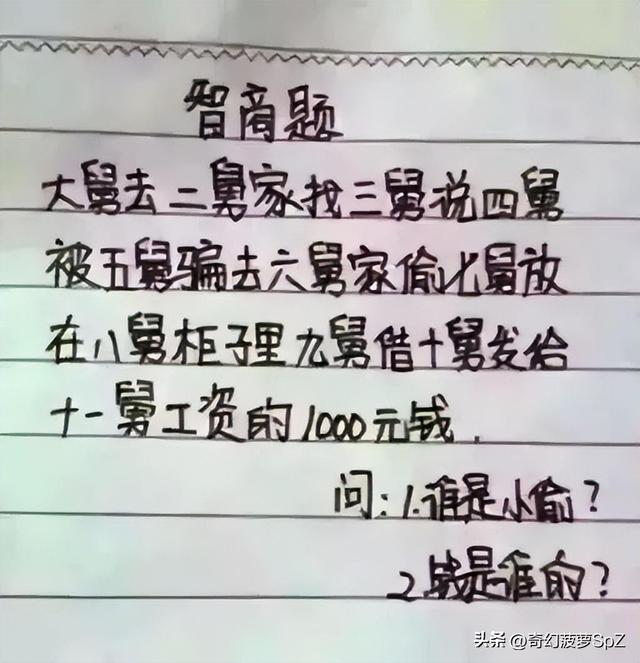 智商题
大舅去二舅家找三舅说四舅
被五舅骗去六舅家偷七舅放
在八舅柜子里九舅借十舅发给
十一舅工资的1000元钱.
问:1.谁是小偷?
2.钱是谁的?
头条 @奇幻菠萝SpZ